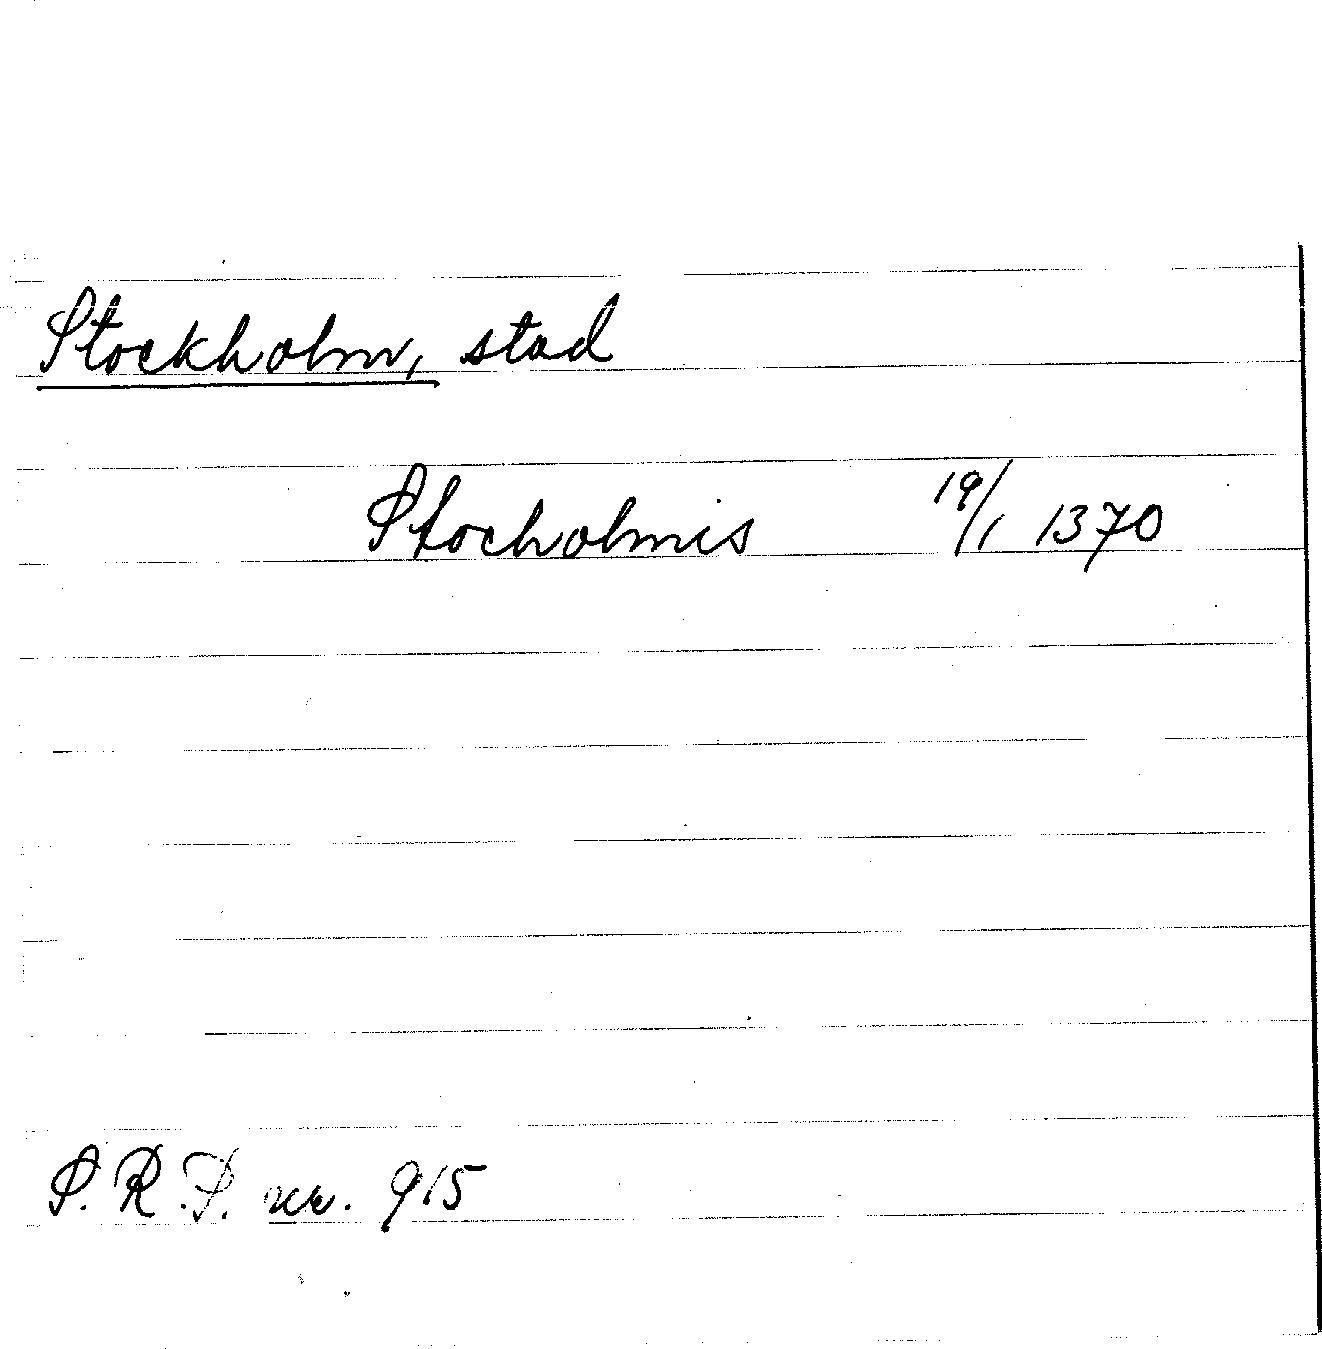 Stockholm, stad
Stocholmis 19/1 1370
S.R.P. nr. 915